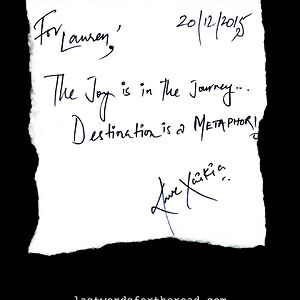 For Lauren,
20/12/2015
The Joy is in the Journey...
Destination is a METAPHOR!
lastwordsfortheroad.com